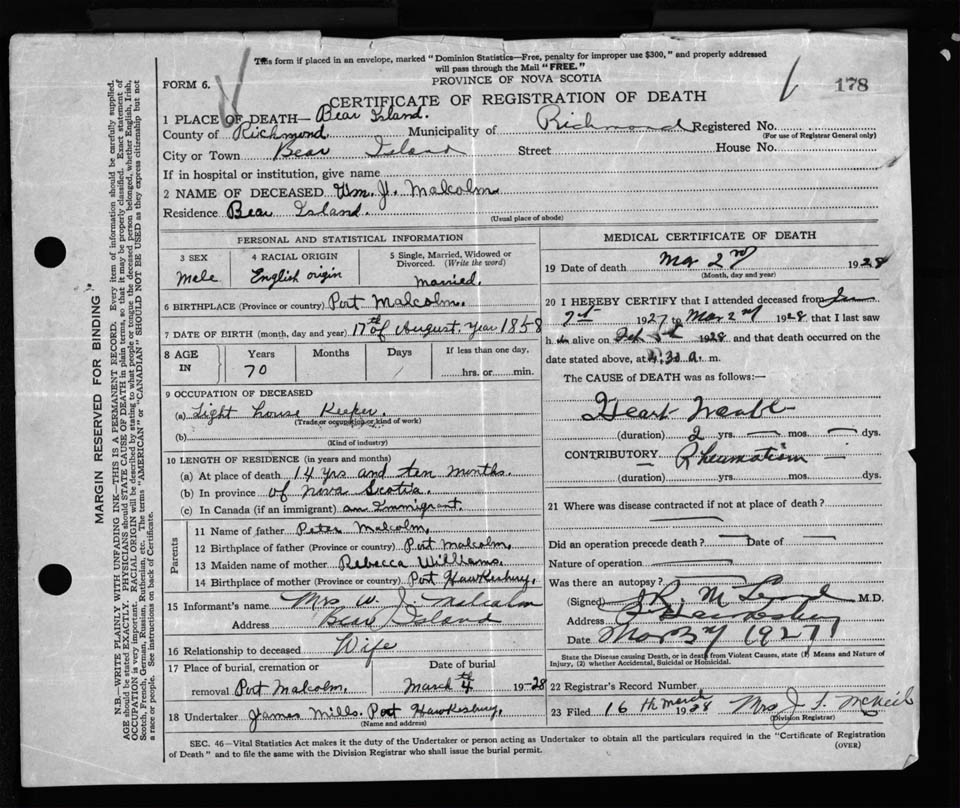 This form if placed in an envelope, marked "Dominion Statistics—Free, penalty for improper use $300," and properly addressed
will pass through the Mail "FREE."
PROVINCE OF NOVA SCOTIA
FORM 6.
178
CERTIFICATE OF REGISTRATION OF DEATH
1 PLACE OF DEATH— Bear Island.
County of Richmond Municipality of Richmond Registered No.
(For use of Registrar General only)
City or Town Bear Island Street House No.
If in hospital or institution, give name
2 NAME OF DECEASED Wm. J. Malcolm
Residence Bear Island.
(Usual place of abode)
PERSONAL AND STATISTICAL INFORMATION
3 SEX 4 RACIAL ORIGIN 5 Single, Married, Widowed or
Divorced. (Write the word)
Mele English origin Married.
6 BIRTHPLACE (Province or country) Port Malcolm.
7 DATE OF BIRTH (month, day and year) 17th of August. Year 1858
8 AGE IN Years Months Days If less than one day,
70 hrs. or min.
9 OCCUPATION OF DECEASED
(a) Light house Keeper.
(Trade or occupation or kind of work)
(b)
(Kind of industry)
10 LENGTH OF RESIDENCE (in years and months)
(a) At place of death 14 yrs and ten months.
(b) In province of Nova Scotia.
(c) In Canada (if an immigrant) an Immigrant.
Parents
11 Name of father Peter Malcolm.
12 Birthplace of father (Province or country) Port Malcolm,
13 Maiden name of mother Rebecca Williams.
14 Birthplace of mother (Province or country) Port Hawkesbury.
15 Informant's name Mrs W. J. Malcolm
Address Bear Island
16 Relationship to deceased Wife
17 Place of burial, cremation or Date of burial
removal Port Malcolm. March 4th 19-28
18 Undertaker James Mills. Port Hawkesbury.
(Name and address)
MEDICAL CERTIFICATE OF DEATH
19 Date of death Mar 2nd 1928
(Month, day and year)
20 I HEREBY CERTIFY that I attended deceased from
1927 to Mar 2nd 1928 that I last saw
h alive on 1928 and that death occurred on the
date stated above, at 4.30 a. m.
The CAUSE OF DEATH was as follows:—
Heart
(duration) 2 yrs. — mos. — dys.
CONTRIBUTORY Rheumatism
(duration) yrs. mos. dys.
21 Where was disease contracted if not at place of death?
Did an operation precede death? Date of
Nature of operation
Was there an autopsy?
(Signed) M.D.
Address
Date Mar 3rd 1927
State the Disease causing Death, or in death from Violent Causes, state (1) Means and Nature of
Injury, (2) whether Accidental, Suicidal or Homicidal.
22 Registrar's Record Number
23 Filed 16th March 1928 Mrs J. McNeil
(Division Registrar)
SEC. 46—Vital Statistics Act makes it the duty of the Undertaker or person acting as Undertaker to obtain all the particulars required in the "Certificate of Registration
of Death" and to file the same with the Division Registrar who shall issue the burial permit.
(OVER)
MARGIN RESERVED FOR BINDING
N.B.—WRITE PLAINLY WITH UNFADING INK—THIS IS A PERMANENT RECORD. Every item of information should be carefully supplied.
AGE should be stated EXACTLY. PHYSICIANS should STATE CAUSE OF DEATH in plain terms, so that it may be properly classified. Exact statement of
OCCUPATION is very important. RACIAL ORIGIN will be described by stating to what people or tongue the deceased person belonged, whether English, Irish,
Scotch, French, German, Russian, Ruthenian, etc. The terms "AMERICAN" or "CANADIAN" SHOULD NOT BE USED as they express citizenship but not
a race or people. See instructions on back of Certificate.